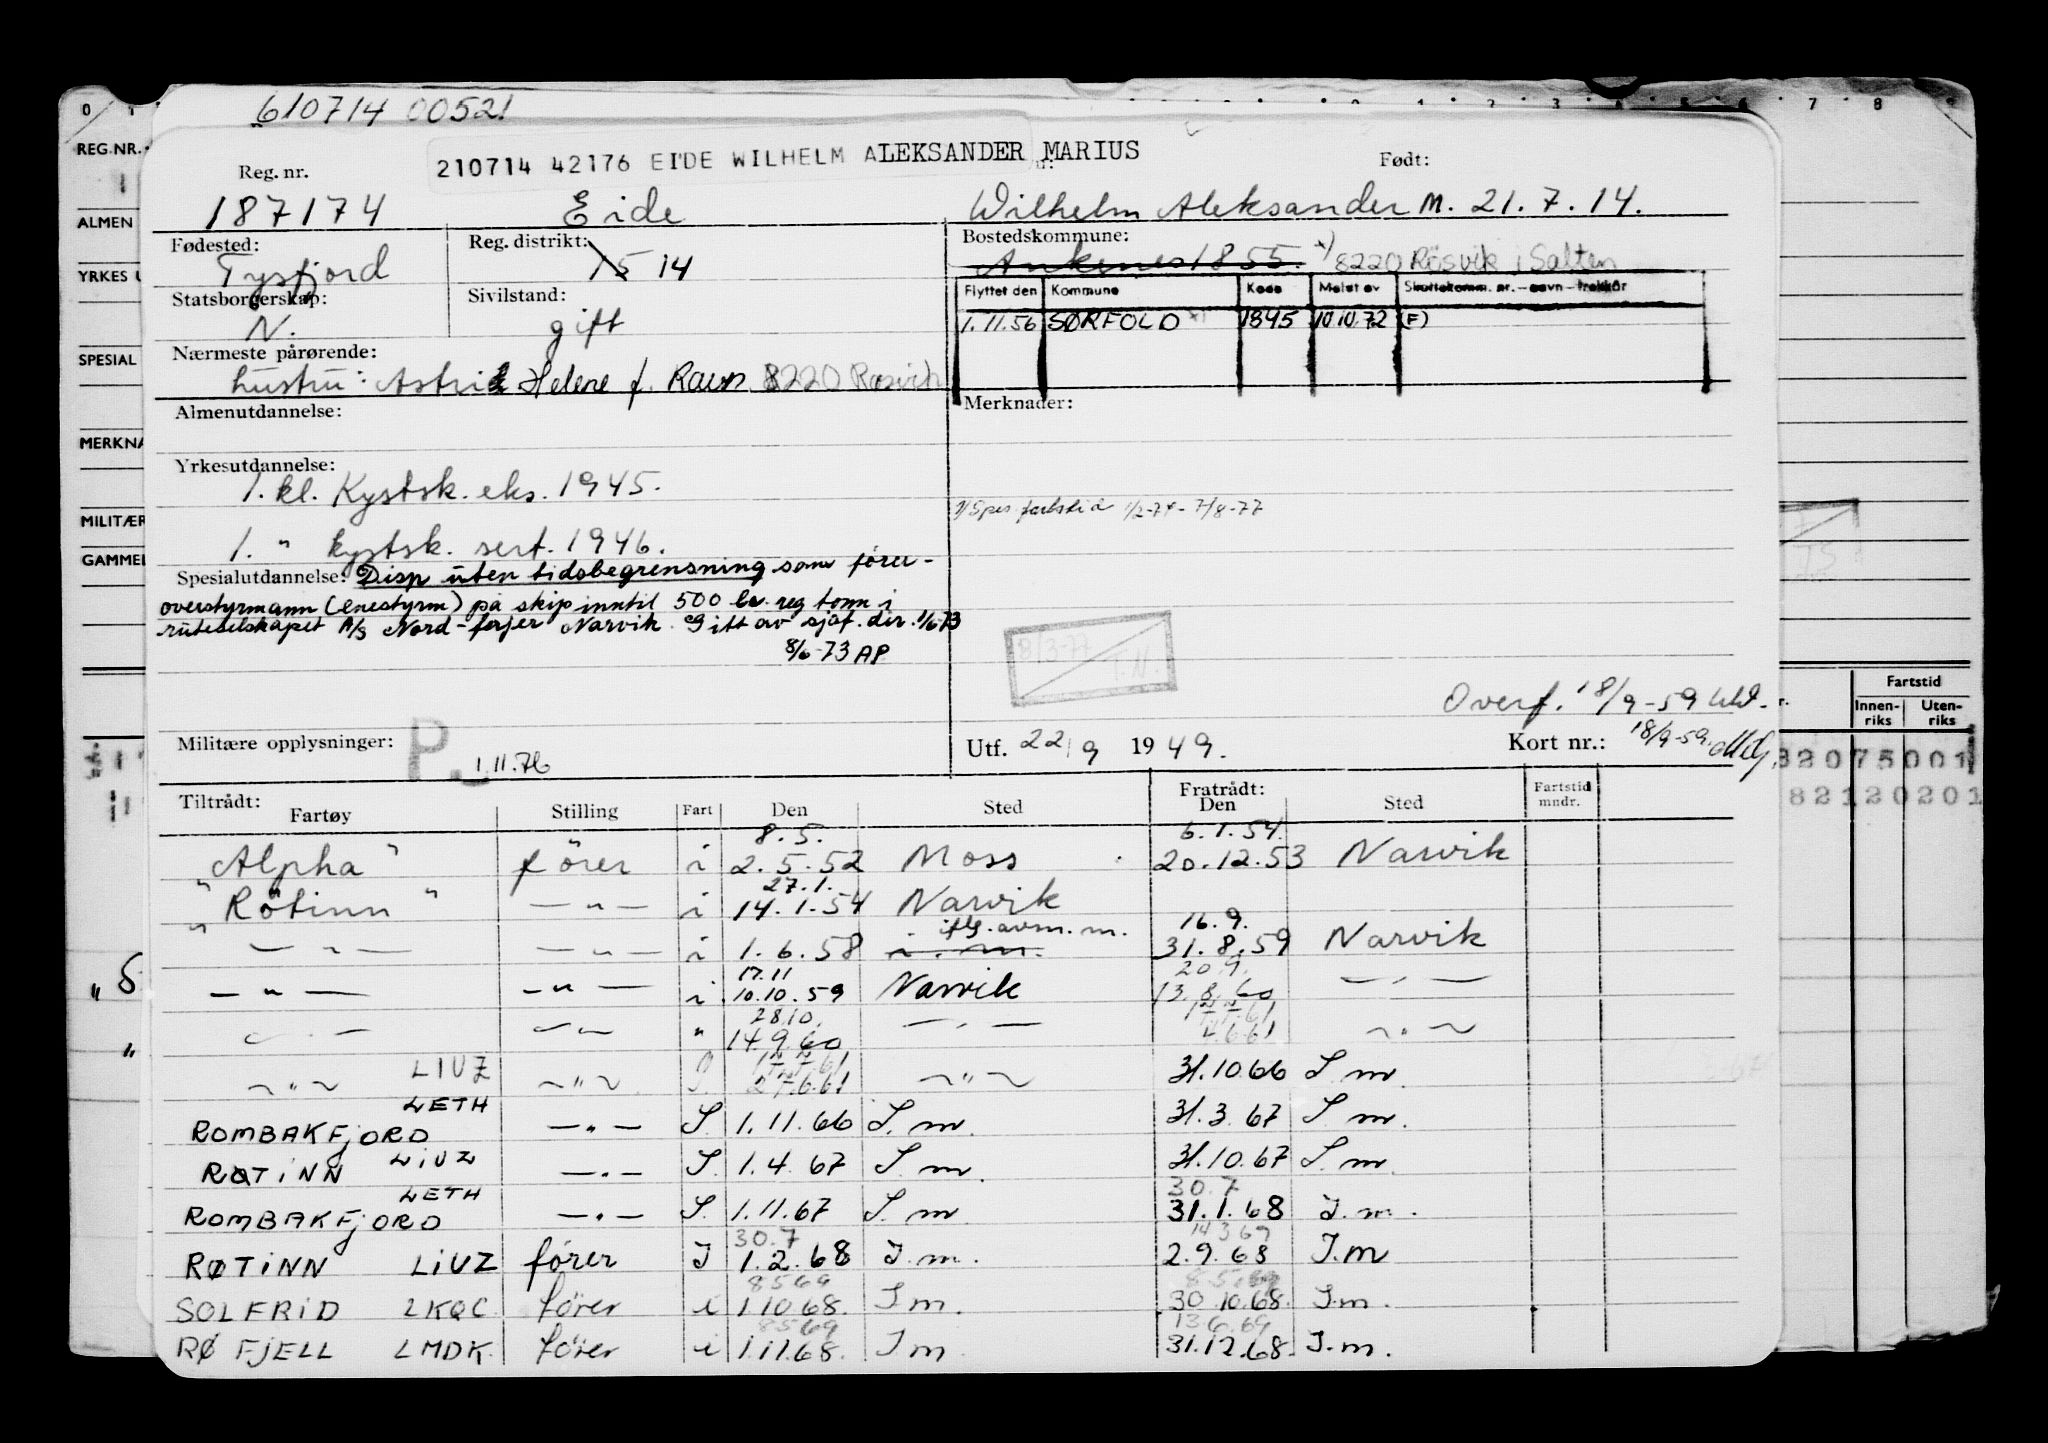 610714 00521
0 1 2 3 4 5 6 7 8
REG.NR.
210714 42176 EIDE WILHELM ALEKSANDER MARIUS
Reg. nr. Født:
187174 Eide Wilhelm Aleksander M. 21.7.14.
ALMEN
Fødested: Reg. distrikt: Bostedskommune:
Tysfjord 15 14 Ankenes 1855. x) 8220 Røsvik i Salten
YRKES U
Statsborgerskap: Sivilstand:
Flyttet den Kommune Kode Meldt av Skattekomm. nr. - navn - trekkår
N. gift
1.11.56 SØRFOLD 1845 10.10.72 (F)
SPESIAL
Nærmeste pårørende:
hustru: Astrid Helene f. Raun 8220 Røsvik
Almenutdannelse: Merknader:
MERKNA
Yrkesutdannelse:
1. kl. Kystsk. eks. 1945.
1/ Spes fartstid 1/2-74 - 7/8-77
MILITÆR
1. " kystsk. sert. 1946.
GAMMEL
Spesialutdannelse: Disp uten tidsbegrensning som fører-
overstyrmann (enestyrm) på skip inntil 500 br. reg tonn i
ruteselskapet A/S Nord-ferjer Narvik. Gitt av sjøf. dir. 1/6-73
8/6-73 AP
8/3-77 T.N.
Overf. 18/9-59
Fartstid
Innen-riks Uten-riks
Militære opplysninger: P. 1.11.76
Utf. 22/9 1949. Kort nr.: 18/9-59.
82075001
82120201
Tiltrådt: Fratrådt:
Fartøy Stilling Fart Den Sted Den Sted Fartstid mndr.
8.5. 6.1.54.
"Alpha" fører i 2.5.52 Moss 20.12.53 Narvik
27.1.
"Rötinn" — " — i 14.1.54 Narvik
iflg. avm. m. 16.9.
— " — — " — i 1.6.58 i. m. 31.8.59 Narvik
17.11 20.9.
— " — — " — i 10.10.59 Narvik 13.8.60 — " —
28.10.
— " — — " — " 14.9.60 — " — 4.6.61 — " —
— " — LIUZ — " — 27.6.61 — " — 31.10.66 I. m.
ROMBAKFJORD LETH — " — I. 1.11.66 I. m. 31.3.67 I. m.
RØTINN LIUZ — " — I. 1.4.67 I. m. 31.10.67 I. m.
30.7
ROMBAKFJORD LETH — " — I. 1.11.67 I. m. 31.1.68 I. m.
30.7 14.3.69
RØTINN LIUZ fører I 1.2.68 I. m. 2.9.68 I.m
8569 8.5.69
SOLFRID LKQC fører i 1.10.68. I m. 30.10.68. I.m.
8569 13.6.69
RØFJELL LMDK fører i 1.11.68. I m. 31.12.68. I.m.